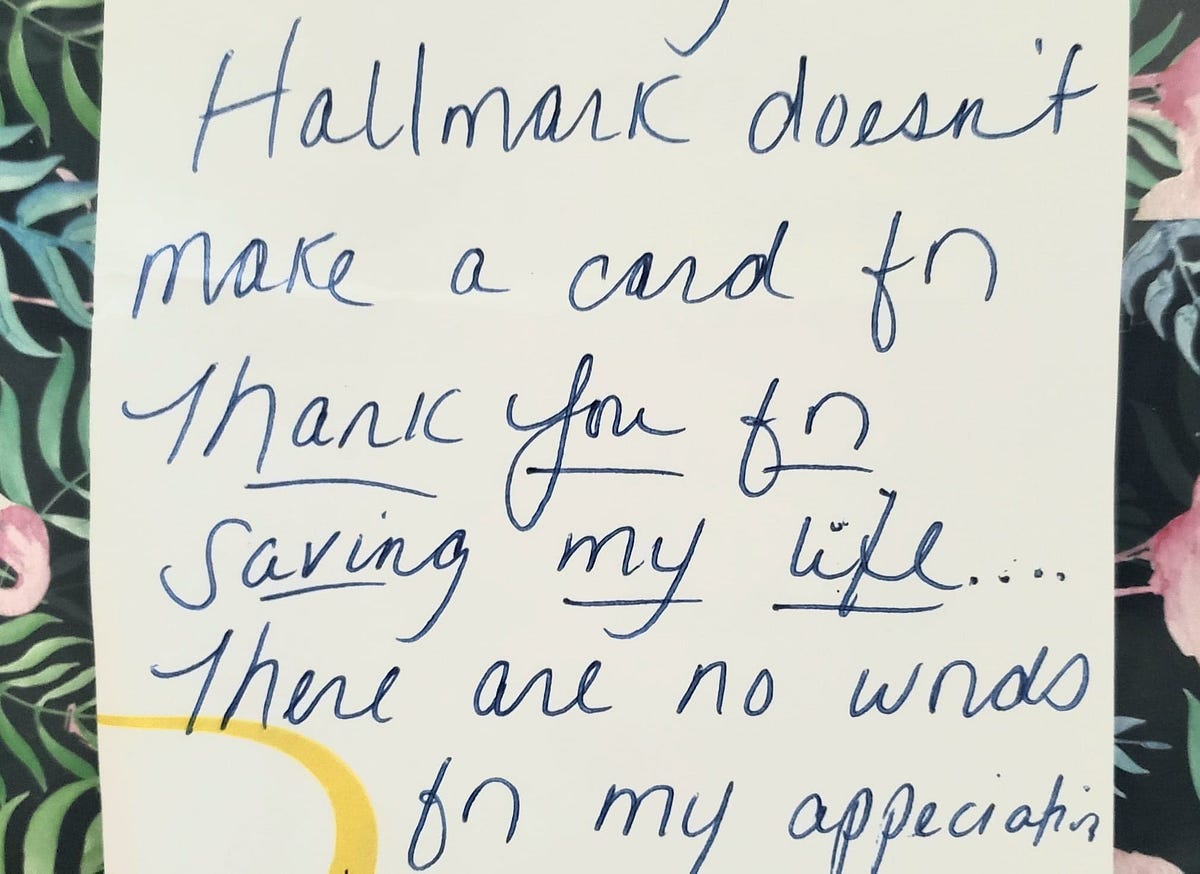 Hallmark doesn't
make a card for
Thank you for
saving my life....
There are no words
for my appeciation